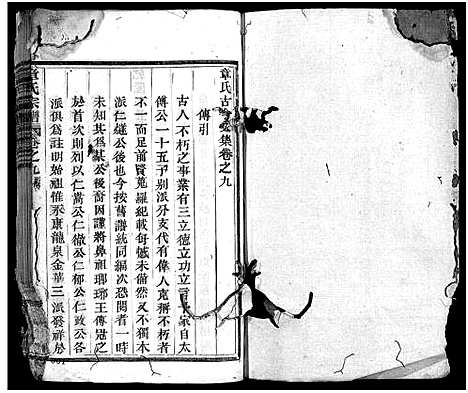 章氏古今文集卷之九
傳引
古人不朽之事業有三立德立功立言吾家自太
傅公一十五子別派分支代有偉人克稱不朽者
不一而足前賢蒐羅紀載每慽未備然又不獨木
派仁嵏公後也今按舊譜統同編次恐閱者一時
未知其爲某公後裔因謹將鼻祖瑯琊王傳冠之
於首次則列以仁嵩公仁徹公仁郁公仁政公各
派俱爲註明始祖惟永康龍泉金華三派發祥於
章氏宗譜 卷之九